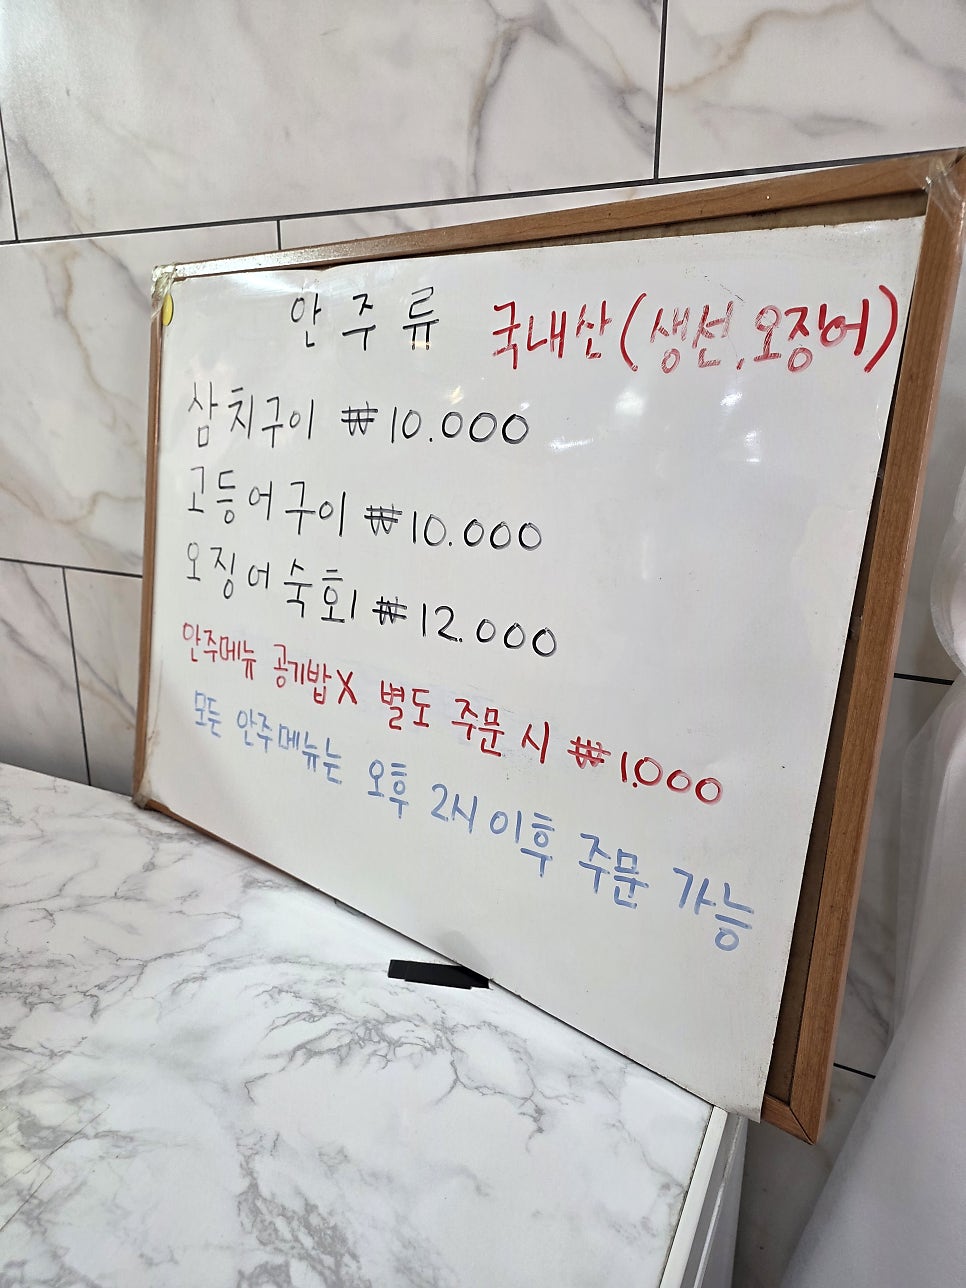 안주류 국내산(생선,오징어)
삼치구이 ₩10.000
고등어구이 ₩10.000
오징어숙회 ₩12.000
안주메뉴 공기밥X 별도 주문 시 ₩1.000
모든 안주메뉴는 오후 2시이후 주문 가능